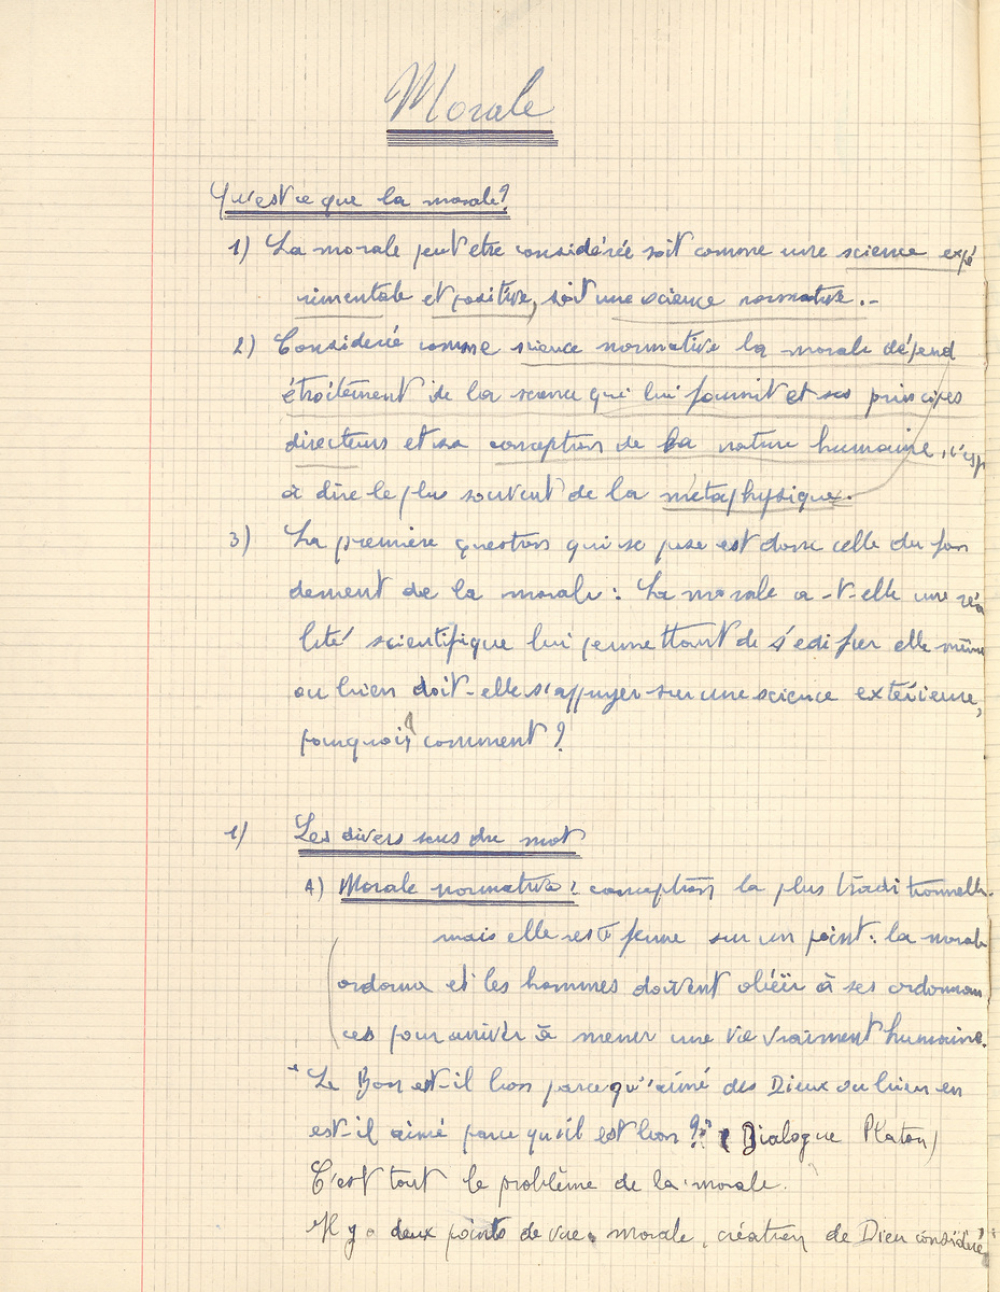 Morale
Qu'est ce que la morale?
1) La morale peut etre considérée soit comme une science expé
rimentale et positive, soit une science normative.-
2) Considerée comme science normative la morale dépend
étroitement de la science qui lui fournit et ses principes
directeurs et sa conception de la nature humaine, c'est
à dire le plus souvent de la métaphysique.
3) La première question qui se pose est donc celle du fon
dement de la morale : La morale a-t-elle une réa
lité scientifique lui permettant de s'edifier elle même
ou bien doit-elle s'appuyer sur une science extérieure,
pourquoi? comment?
1) Les divers sens du mot
A) Morale normative : conception la plus traditionnelle.
mais elle est ferme sur un point : la morale
ordonne et les hommes doivent obéir à ses ordonnan
ces pour arriver à mener une vie vraiment humaine.
" Le Bon est-il bon parce qu'aimé des Dieux ou bien en
est-il aimé parce qu'il est bon ?" ( Dialogue Platon)
C'est tout le problème de la morale.
Il y a deux points de vue. morale, création de Dieu considéré